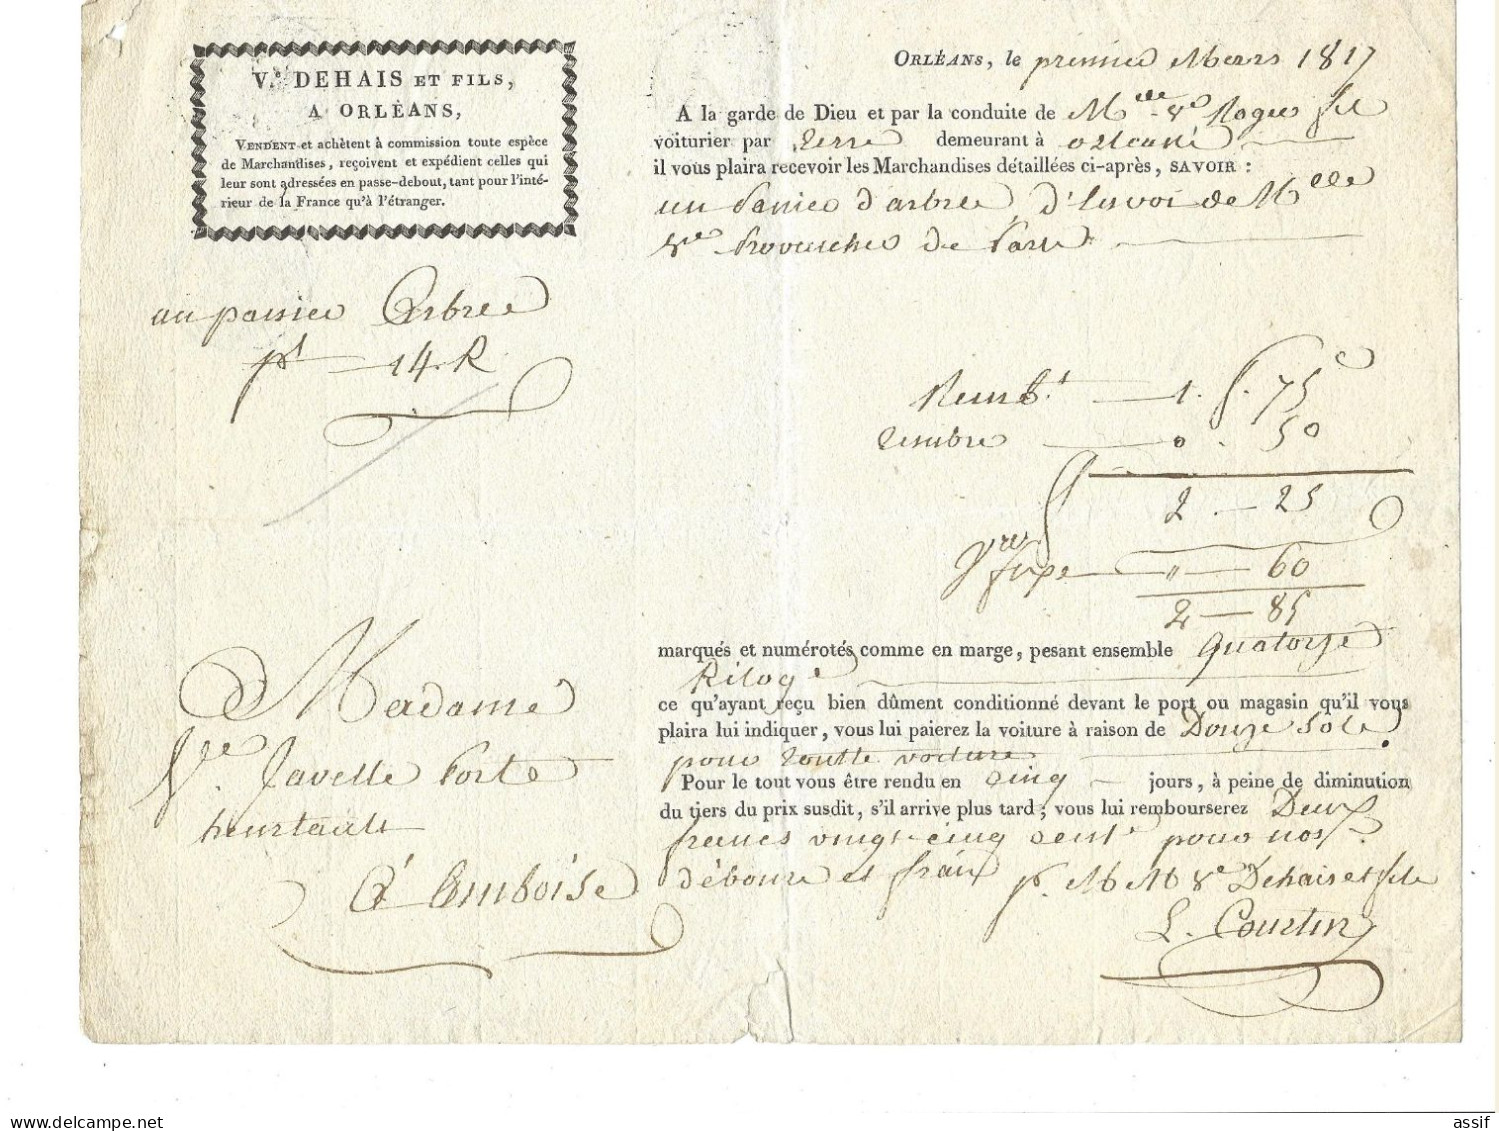 V.e DEHAIS ET FILS,
A ORLÉANS,
VENDENT et achètent à commission toute espèce
de Marchandises, reçoivent et expédient celles qui
leur sont adressées en passe-debout, tant pour l'inté-
rieur de la France qu'à l'étranger.
ORLÉANS, le premier Mars 1817
A la garde de Dieu et par la conduite de Mlle Ve
voiturier par terre demeurant à orleans
il vous plaira recevoir les Marchandises détaillées ci-après, SAVOIR :
un panier d'arbre, d'Envoi de Mlle
Ve de Paris
un panier Arbre
pt 14. K
Remb.t 1. f. 75 c
timbre 0. 50
2 - 25
60
2 - 85
marqués et numérotés comme en marge, pesant ensemble Quatorze
Kilog.
ce qu'ayant reçu bien dûment conditionné devant le port ou magasin qu'il vous
plaira lui indiquer, vous lui paierez la voiture à raison de Douze Sols
pour toutte voiture
Pour le tout vous être rendu en cinq jours, à peine de diminution
du tiers du prix susdit, s'il arrive plus tard; vous lui rembourserez Deux
francs vingt-cinq cent. pour nos
déboure et fraix p. MM Ve Dehais et fils
L. Courtin
Madame
Ve. Javelle Porte
heurtault
A Amboise
assif
delcampe.net